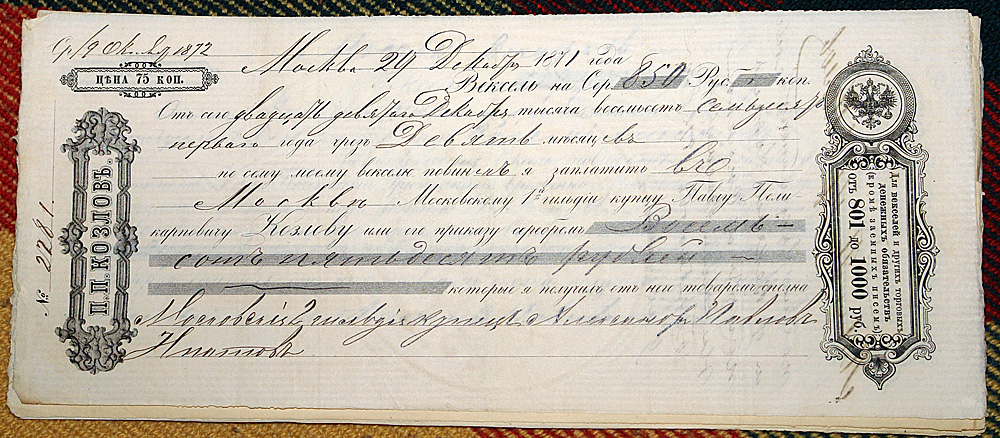 Ср. 19 Октября 1872
Москва 29 Декабря 1871 года
ЦѢНА 75 КОП.
Вексель на Сер. 850 Руб. коп.
Отъ сего двадцать девятаго Декабря тысяча восемьсотъ семьдесятъ
перваго года чрезъ Девять мѣсяцевъ
по сему моему векселю повиненъ я заплатить въ
Москвѣ Московскому 1й гильдіи купцу Павлу Поли-
карповичу Козлову или его приказу серебромъ Восемь-
сотъ пятьдесятъ рублей
которые я получилъ отъ него товаромъ сполна
Московскій 2 гильдіи купецъ Александръ Павловъ
№ 2281.
П. П. КОЗЛОВЪ.
Для векселей и другихъ торговыхъ
денежныхъ обязательствъ
(кромѣ заемныхъ писемъ)
отъ 801 до 1000 руб.